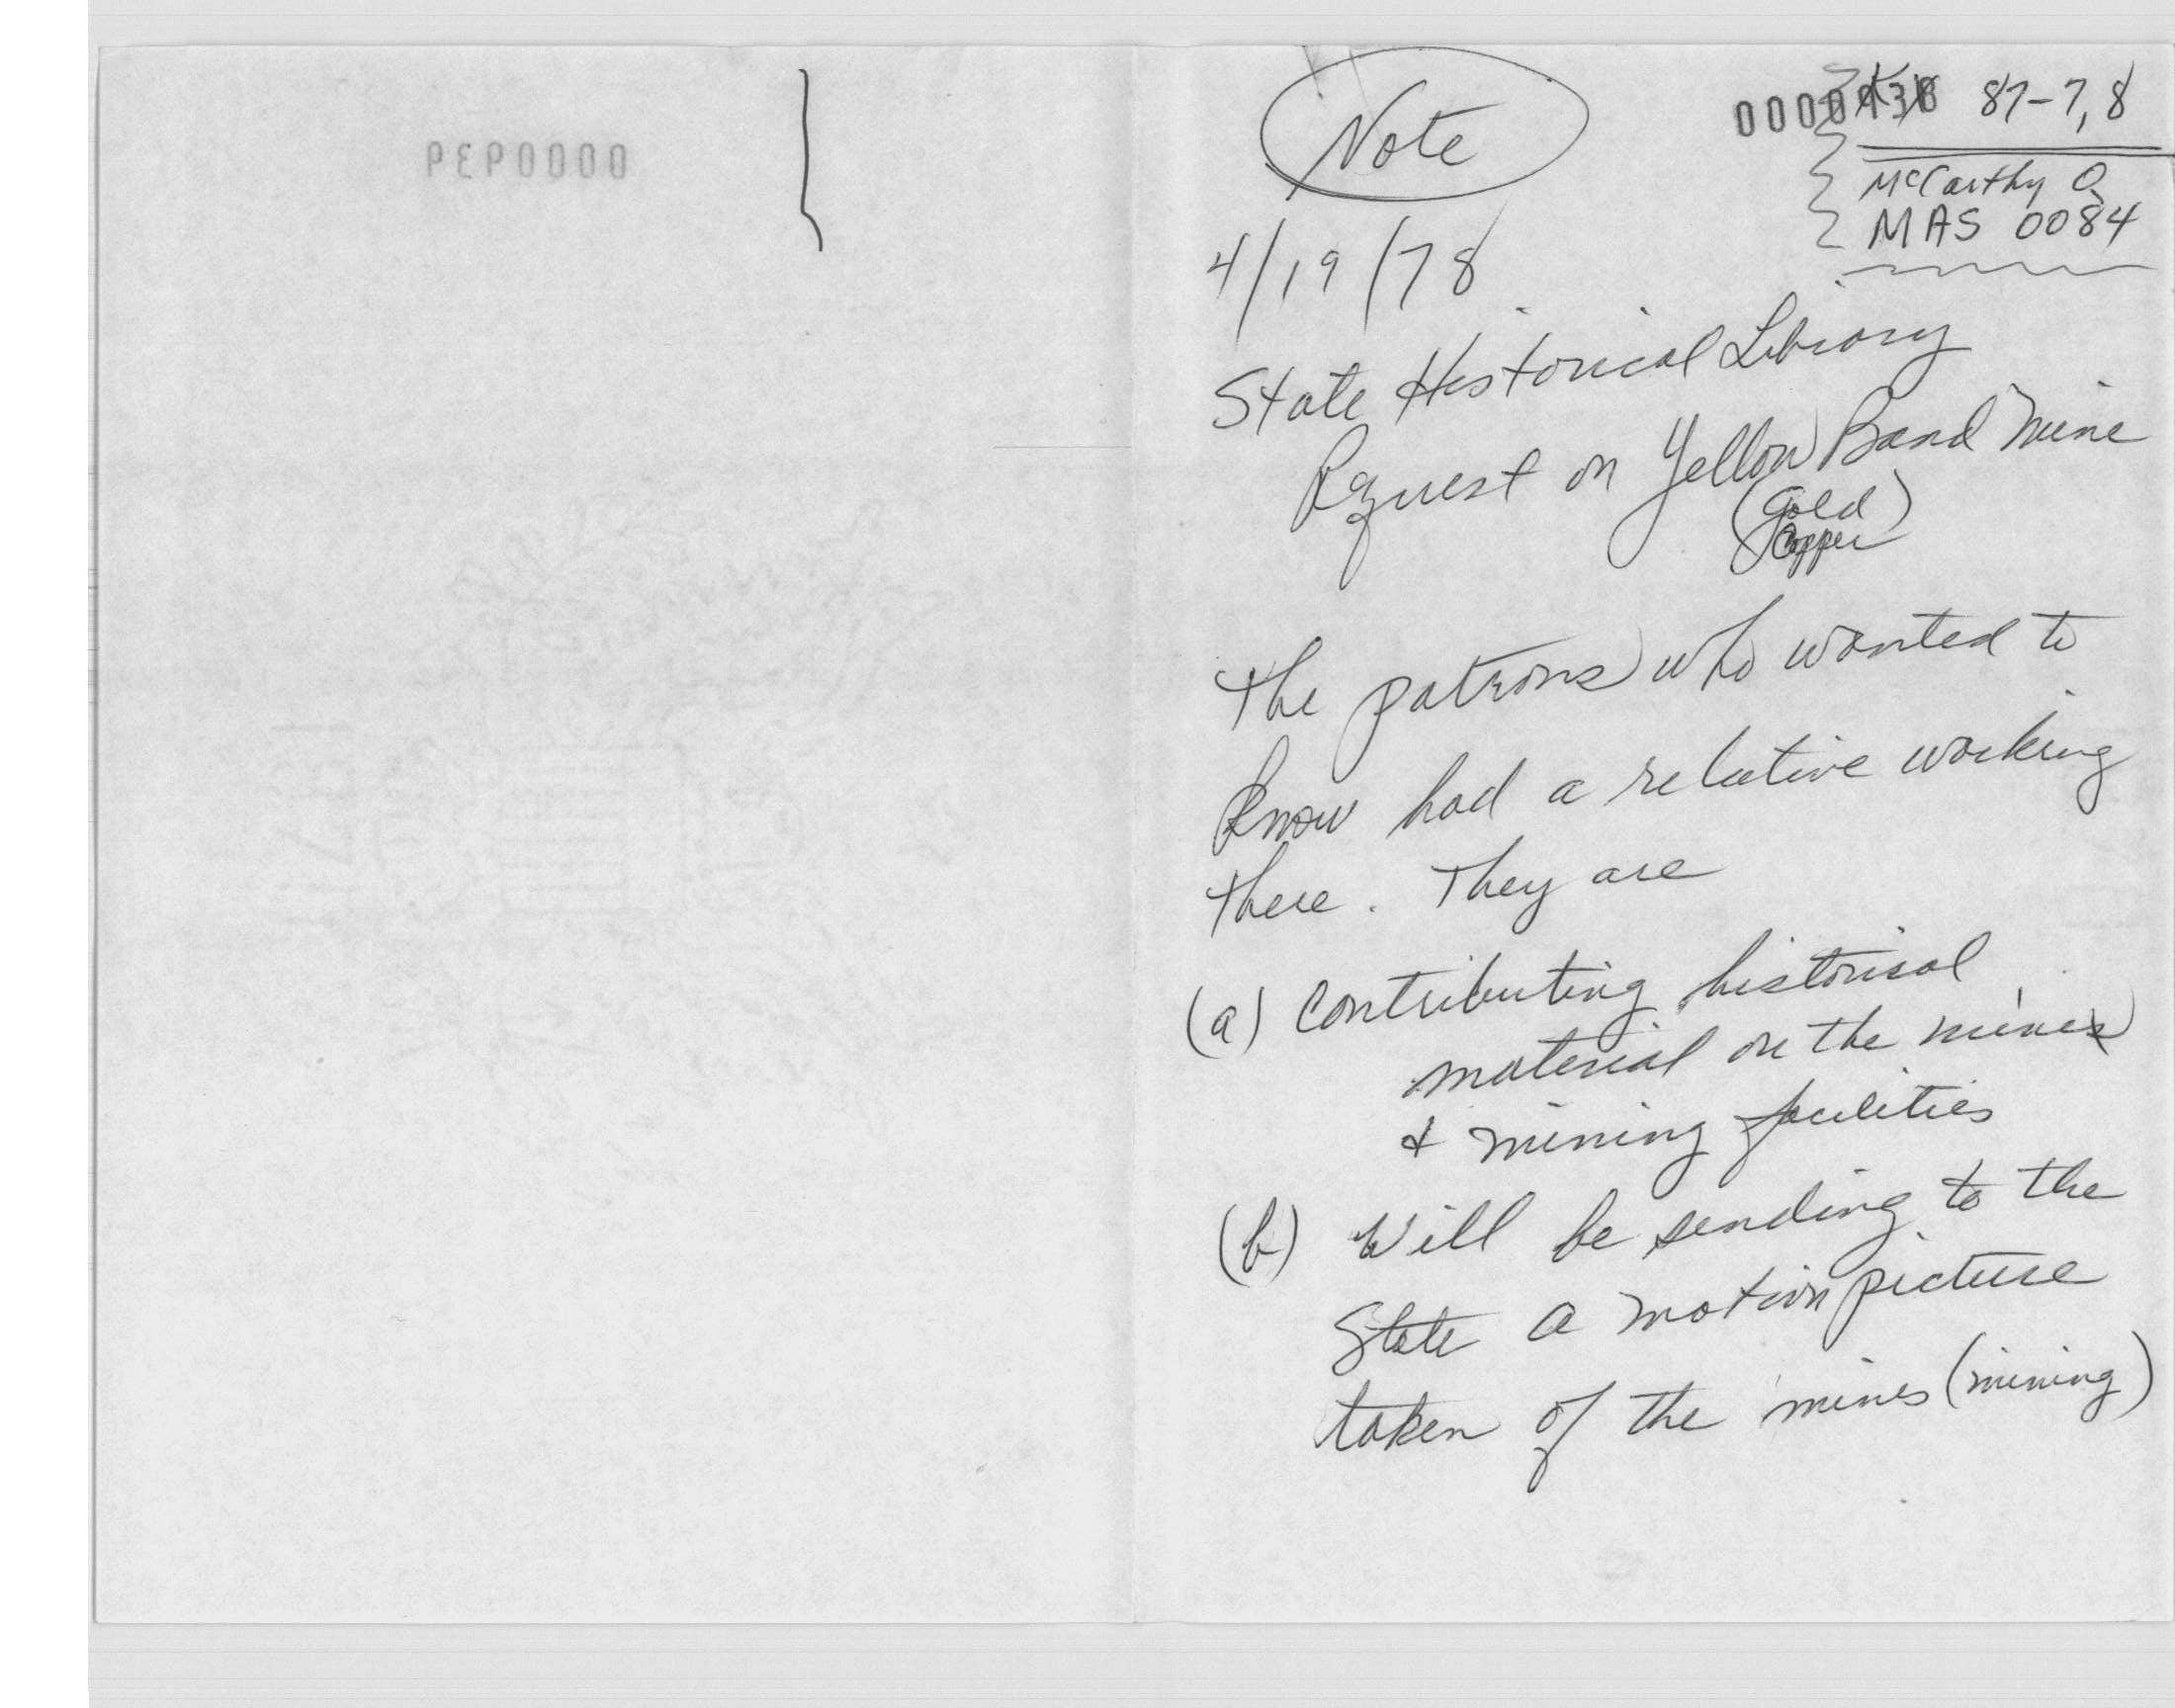 Note
87-7,8
McCarthy Q
MAS 0084
4/19/78
State Historical Library
Request on Yellow Band Mine
(Gold
Copper)
The patrons who wanted to
know had a relative working
there. They are
(a) Contributing historical
material on the mines
& mining facilities
(b) Will be sending to the
State a motion picture
taken of the mines (mining)